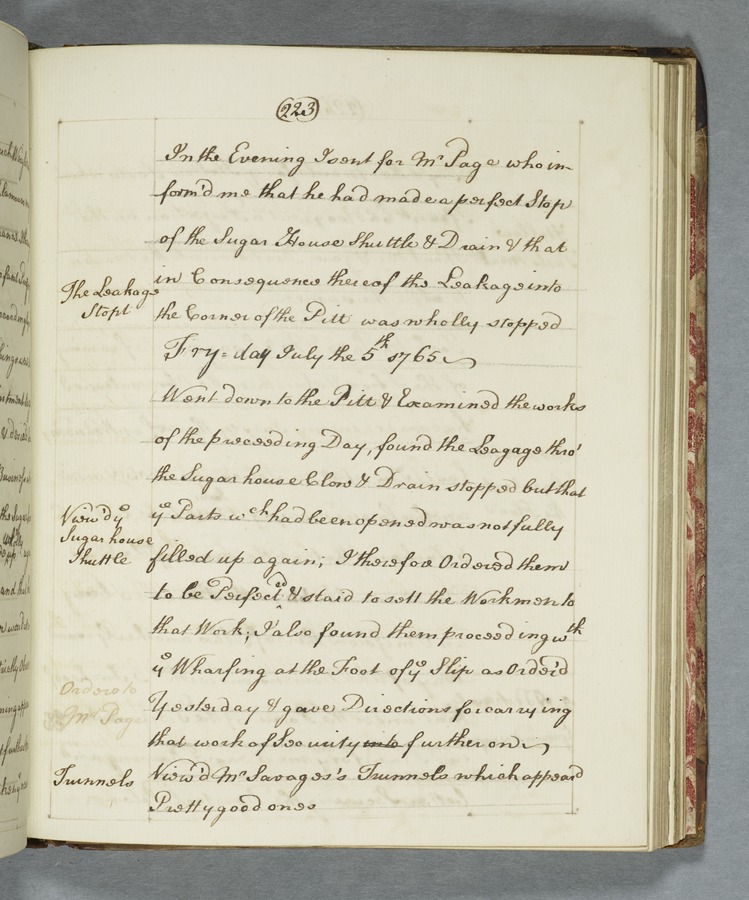 223
In the Evening I sent for Mr Page who in-
form'd me that he had made a perfect Stop
of the Sugar House Shuttle & Drain & that
The Leakage
Stopt
in Consequence thereof the Leakage into
the Corner of the Pitt was wholly stopped
Fry=day July the 5th 1765
Went down to the Pitt & Examined the works
of the preceeding Day, found the Leagage thro'
the Sugar house Clow & Drain stopped but that
View'd ye
Sugar house
Shuttle
ye Parts wch had been opened was not fully
filled up again; I therefore Ordered them
to be Perfected & staid to sett the Workmen to
that Work; I also found them proceeding wth
ye Wharfing at the Foot of ye Slip as Order'd
Orders to
Mr Page
Yesterday & gave Directions for carrying
that work of Security into further on
Trunnels
View'd Mr Savages's Trunnels which appear'd
Pretty good ones